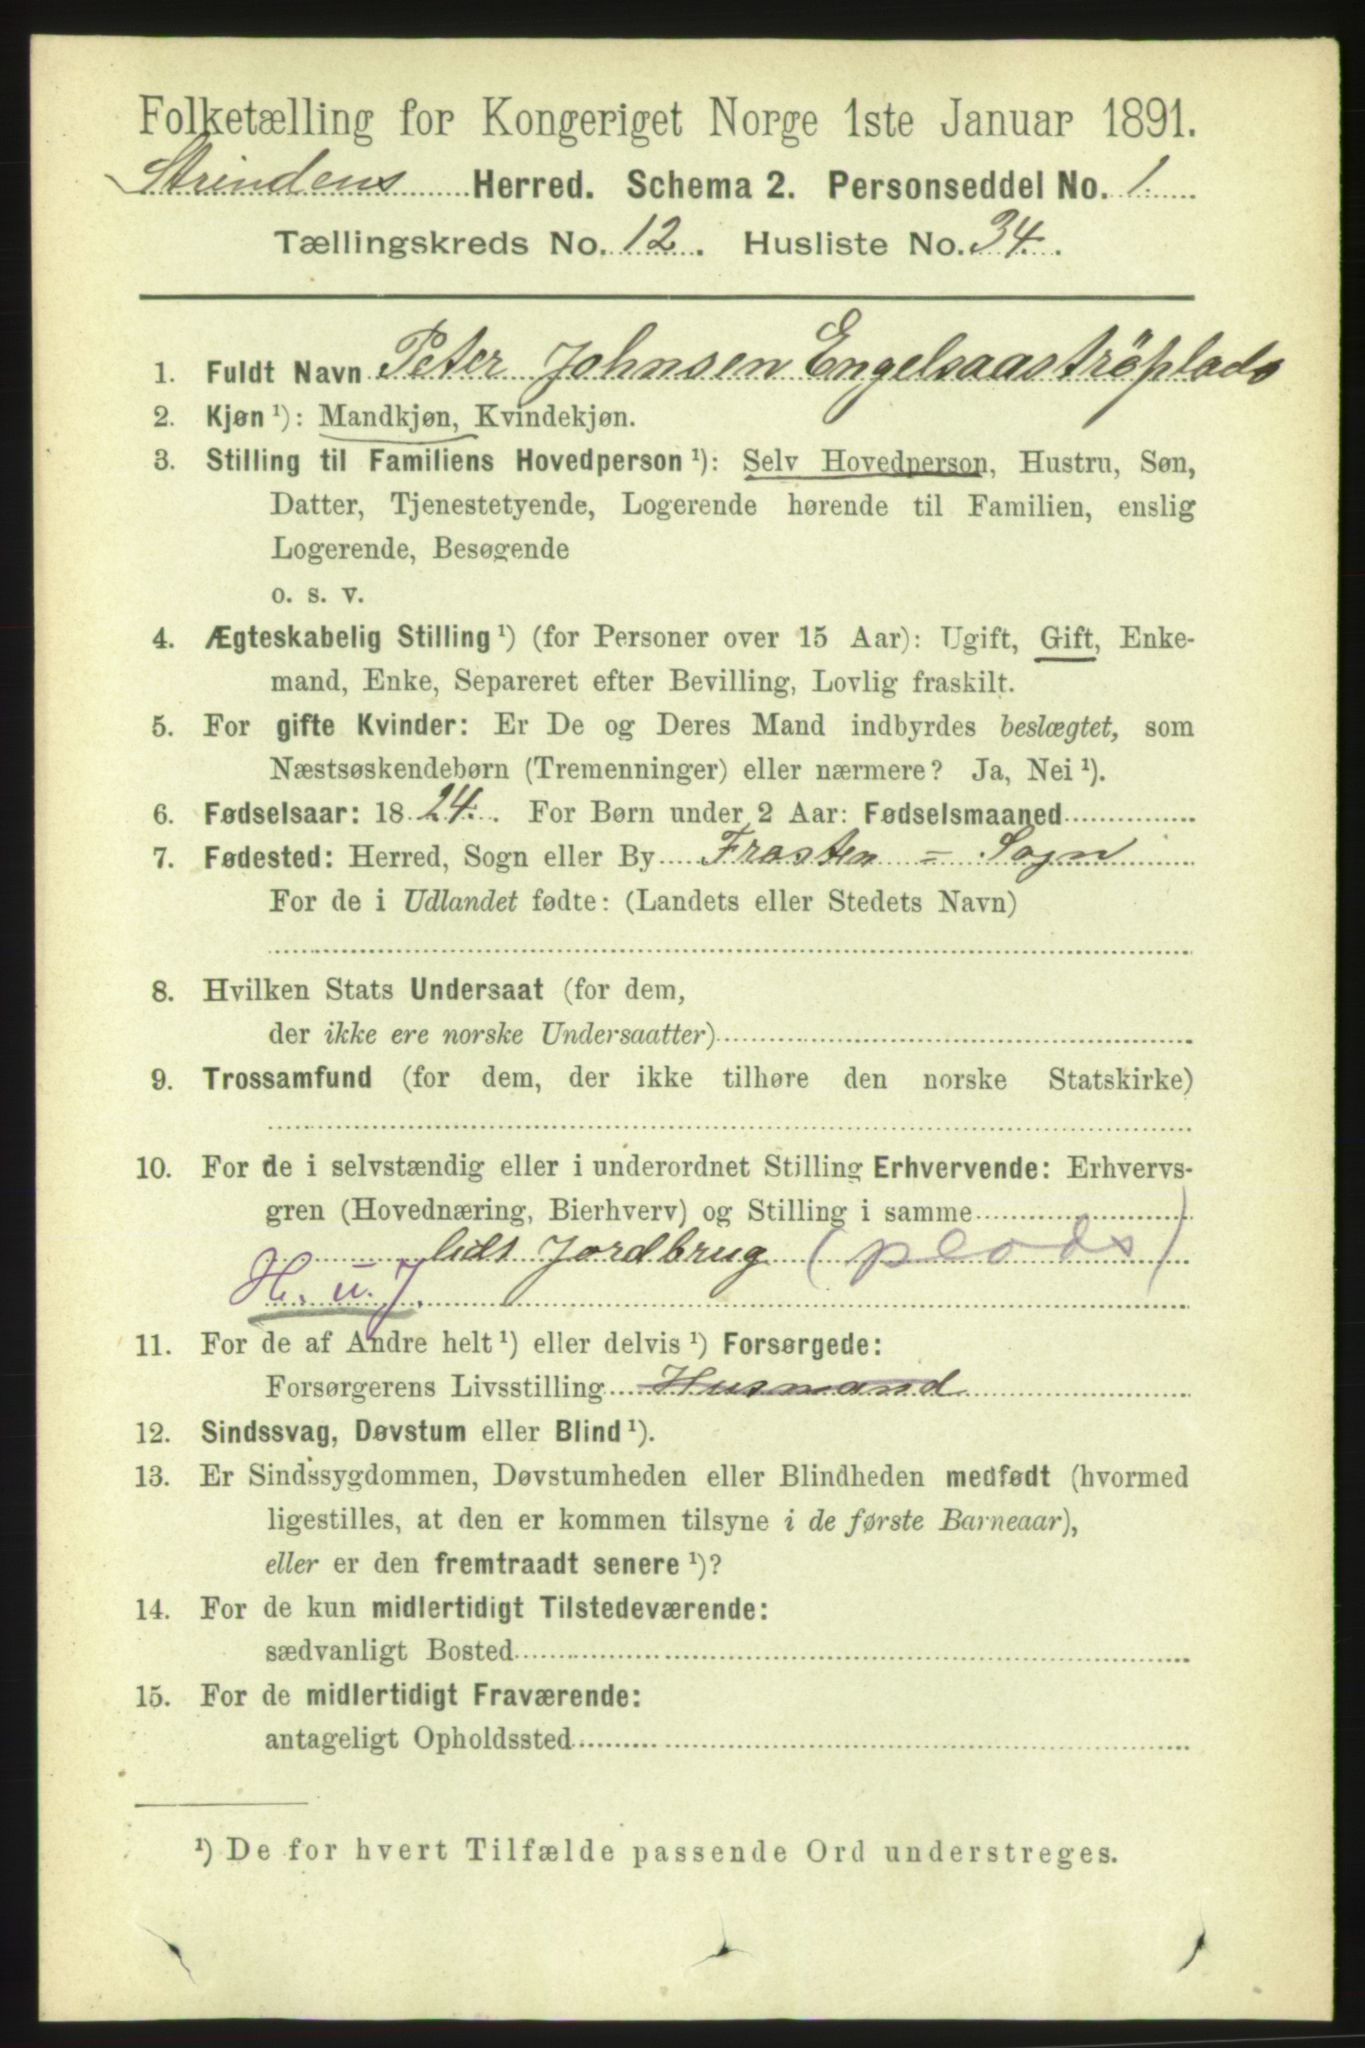 Folketælling for Kongeriget Norge 1ste Januar 1891.
Strindens Herred. Schema 2. Personseddel No. 1
Tællingskreds No. 12. Husliste No. 34.
1. Fuldt Navn Peter Johnsen Engelsaastrøplads
2. Kjøn ¹): Mandkjøn, Kvindekjøn.
3. Stilling til Familiens Hovedperson ¹): Selv Hovedperson, Hustru, Søn,
Datter, Tjenestetyende, Logerende hørende til Familien, enslig
Logerende, Besøgende
o. s. v.
4. Ægteskabelig Stilling ¹) (for Personer over 15 Aar): Ugift, Gift, Enke-
mand, Enke, Separeret efter Bevilling, Lovlig fraskilt.
5. For gifte Kvinder: Er De og Deres Mand indbyrdes beslægtet, som
Næstsøskendebørn (Tremenninger) eller nærmere? Ja, Nei ¹).
6. Fødselsaar: 1824. For Børn under 2 Aar: Fødselsmaaned
7. Fødested: Herred, Sogn eller By Frosten = Sogn
For de i Udlandet fødte: (Landets eller Stedets Navn)
8. Hvilken Stats Undersaat (for dem,
der ikke ere norske Undersaatter)
9. Trossamfund (for dem, der ikke tilhøre den norske Statskirke)
10. For de i selvstændig eller i underordnet Stilling Erhvervende: Erhvervs-
gren (Hovednæring, Bierhverv) og Stilling i samme
lidt Jordbrug (plads)
H. u. J.
11. For de af Andre helt ¹) eller delvis ¹) Forsørgede:
Forsørgerens Livsstilling Husmand
12. Sindssvag, Døvstum eller Blind ¹).
13. Er Sindssygdommen, Døvstumheden eller Blindheden medfødt (hvormed
ligestilles, at den er kommen tilsyne i de første Barneaar),
eller er den fremtraadt senere ¹)?
14. For de kun midlertidigt Tilstedeværende:
sædvanligt Bosted
15. For de midlertidigt Fraværende:
antageligt Opholdssted
¹) De for hvert Tilfælde passende Ord understreges.